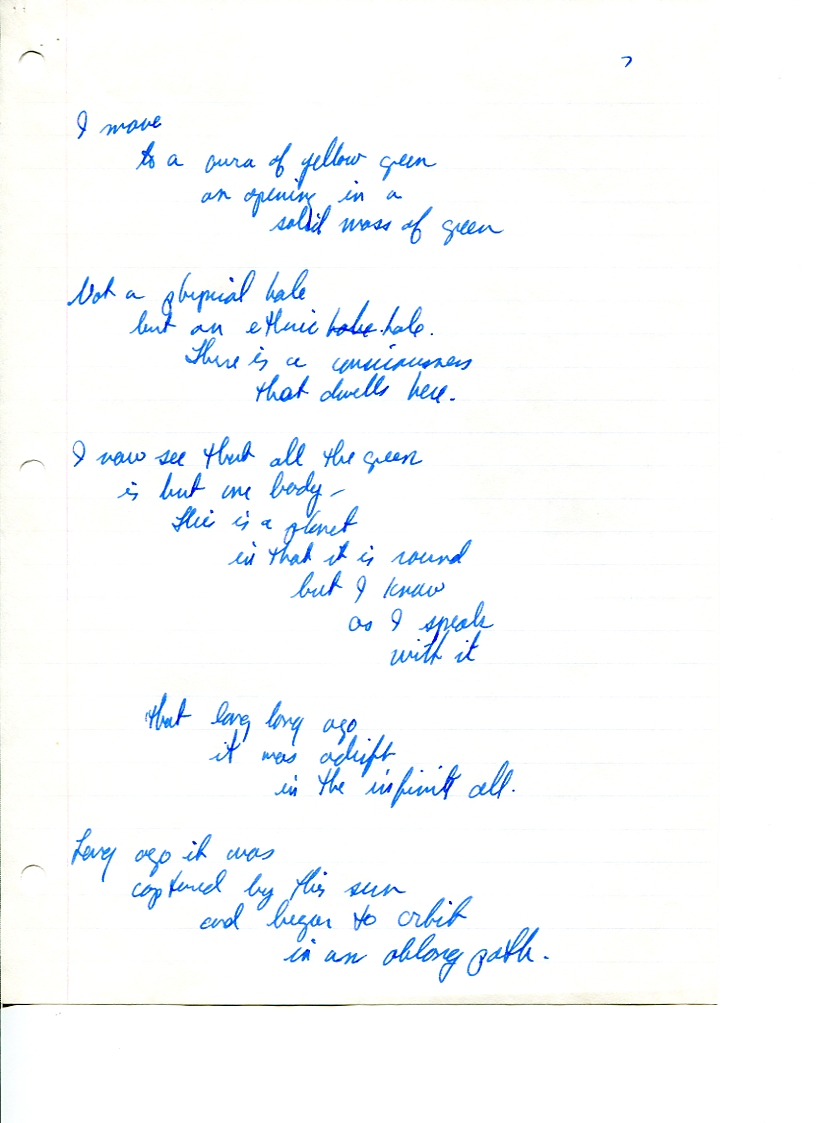 7
I move
to a aura of yellow green
an opening in a
solid mass of green
Not a physical hole
but an etheric hole hole.
There is a consciousness
that dwells here.
I now see that all the green
is but one body –
This is a planet
in that it is round
but I know
as I speak
with it
that long long ago
it was adrift
in the infinite all.
Long ago it was
captured by this sun
and began to orbit
in an oblong path.